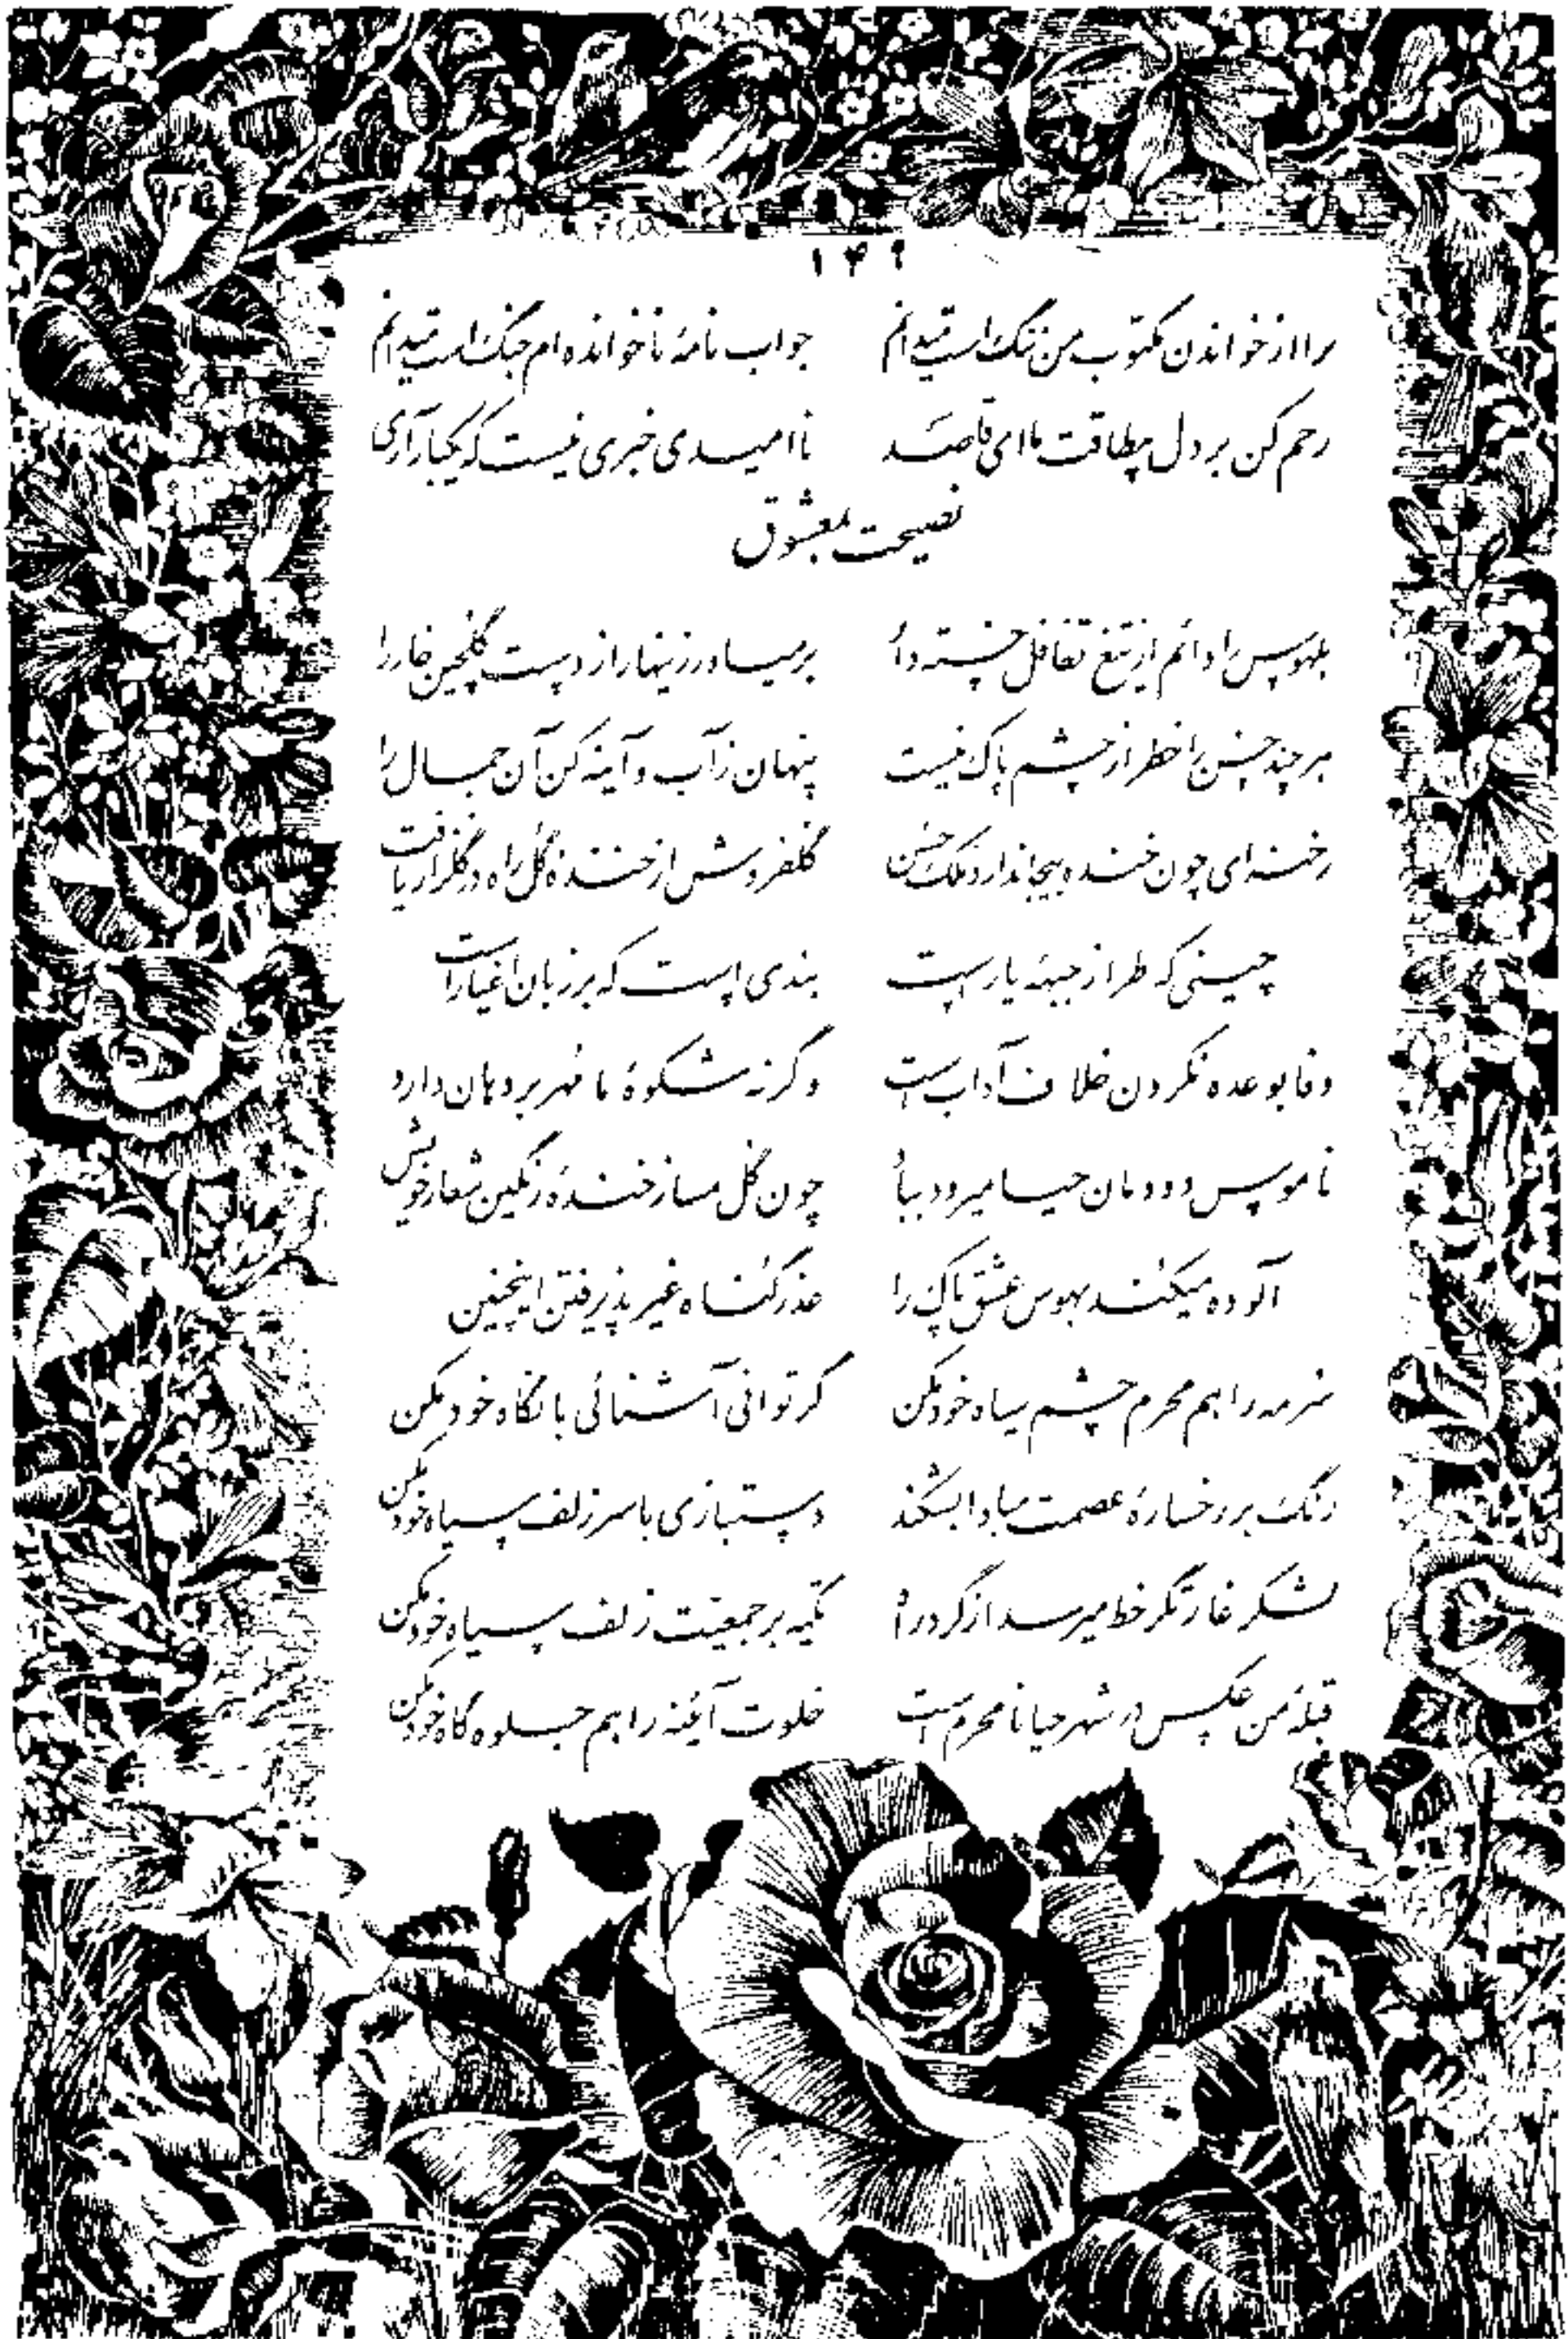 ۱۴۹
را از خواندن مکتوب من ننگ است میدانم جواب نامهٔ ناخوانده‌ام جنگ است میدانم
رحم کن بر دل بیطاقت ما ای قاصد ناامیدی خبری نیست که یکبار آری
نصیحت بمعشوق
بلهوس را دائم از تیغ تغافل خسته دار برمیاور زینهار از دست گلچین خار را
هر چند حسن را خطر از چشم پاک نیست پنهان ز آب و آینه کن آن جمال را
رخنه‌ای چون خنده بیجا ندارد ملک حسن گلفروش از خندهٔ گل راه در گلزار یافت
چینی که طراز جبههٔ یار است بندی است که بر زبان اغیار است
وفا بوعده نکردن خلاف آداب است وگرنه شکوهٔ ما مهر بر دهان دارد
ناموس دودمان حیا میرود بباد چون گل مساز خندهٔ رنگین شعار خویش
آلوده میکند بهوس عشق پاک را عذر گناه غیر پذیرفتن اینچنین
سرمه را هم محرم چشم سیاه خود مکن گر توانی آشنائی با نگاه خود مکن
رنگ بر رخسارهٔ عصمت مبادا بشکند دستبازی با سر زلف سیاه خود مکن
لشکر غارتگر خط میرسد از گرد راه تکیه بر جمعیّت زلف سیاه خود مکن
قبلهٔ من عکس در شهر حیا نامحرم است خلوت آئینه را هم جلوه گاه خود مکن